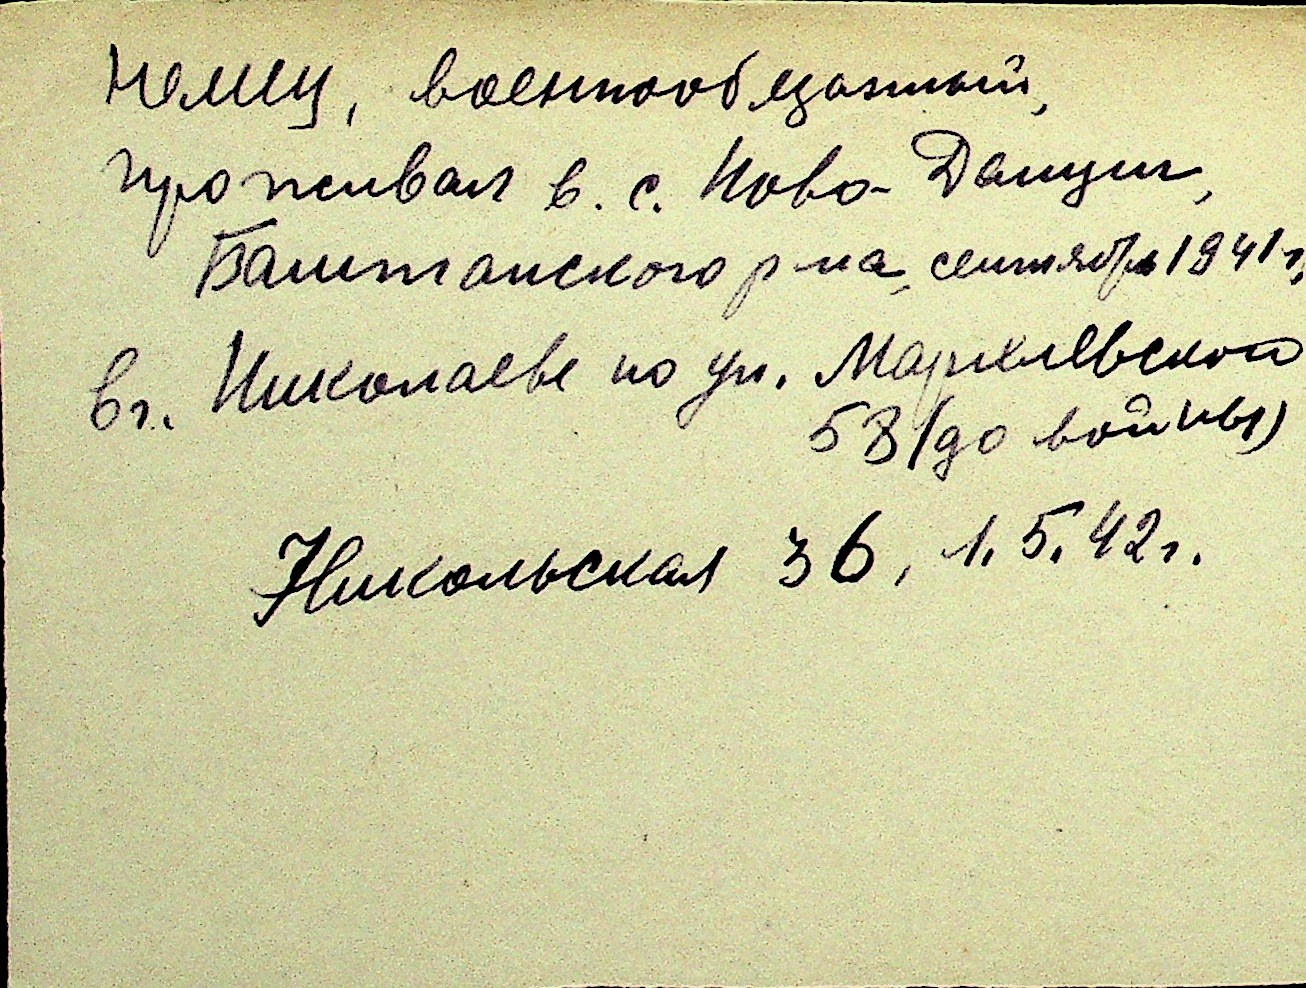 Немец, военнообязанный,
проживал в. с. Ново-Данциг,
Баштанского р-на, сентябрь 1941 г,
в г. Николаеве по ул. Мархлевского
58 (до войны)
Никольская 36, 1.5.42 г.